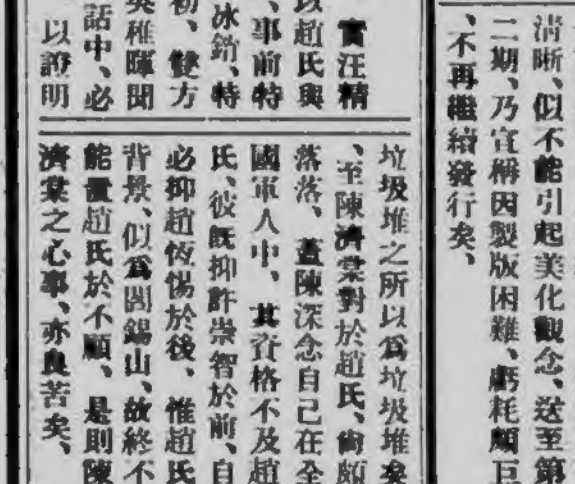 清晰、似不能引起美化觀念、送至第
二期、乃宣稱因製版困難、虧耗頗巨
、不再繼續發行矣、
實汪精
以趙氏與
、事前特
冰銷、特
初、雙方
稚暉聞
話中、必
以證明
垃圾堆之所以爲垃圾堆矣
、至陳濟棠對於趙氏、尙頗
落落、蓋陳深念自己在全
國軍人中、其資格不及趙
氏、彼旣抑許崇智於前、自
必抑趙恆惕於後、惟趙氏
背景、似爲閻錫山、故終不
能置趙氏於不顧、是則陳
濟棠之心事、亦良苦矣、